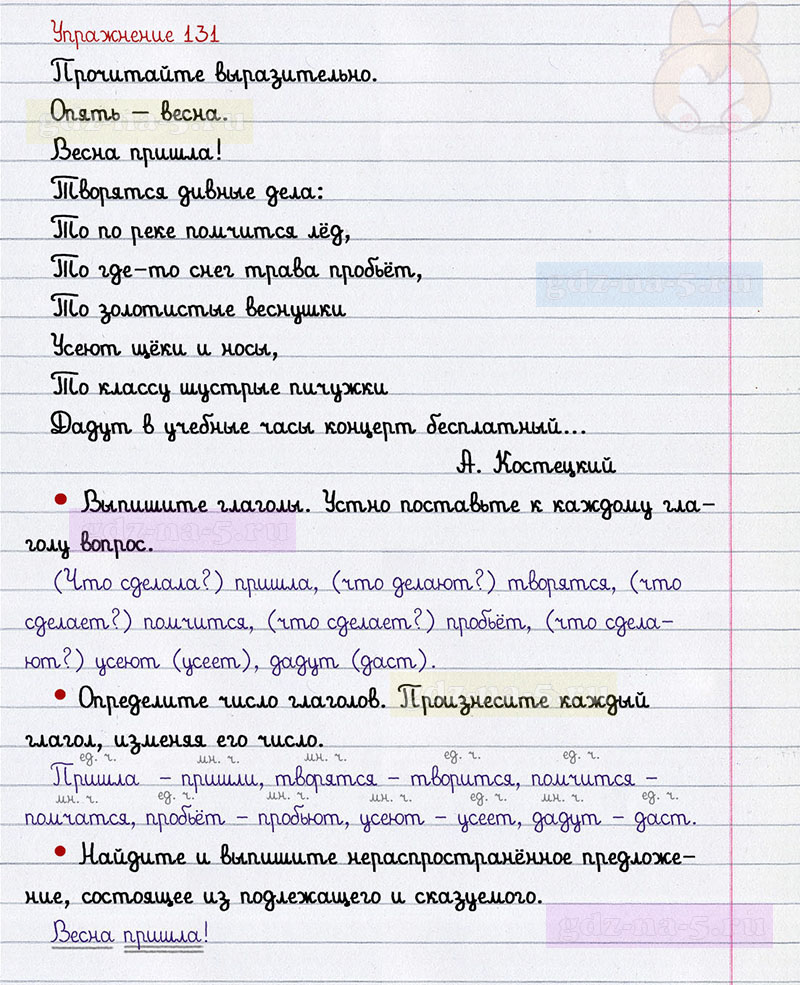 Упражнение 131
Прочитайте выразительно.
Опять – весна.
gdz-na-5.ru
Весна пришла!
Творятся дивные дела:
То по реке помчится лёд,
То где-то снег трава пробьёт,
gdz-na-5.ru
То золотистые веснушки
Усеют щёки и носы,
То классу шустрые пичужки
Дадут в учебные часы концерт бесплатный...
А. Костецкий
• Выпишите глаголы. Устно поставьте к каждому гла-
gdz-na-5.ru
голу вопрос.
(Что сделала?) пришла, (что делают?) творятся, (что
сделает?) помчится, (что сделает?) пробьёт, (что сдела-
ют?) усеют (усеет), дадут (даст).
gdz-na-5.ru
• Определите число глаголов. Произнесите каждый
глагол, изменяя его число.
ед. ч. мн. ч. мн. ч. ед. ч. ед. ч.
Пришла – пришли, творятся – творится, помчится –
мн. ч. ед. ч. мн. ч. мн. ч. ед. ч. мн. ч. ед. ч.
помчатся, пробьёт – пробьют, усеют – усеет, дадут – даст.
• Найдите и выпишите нераспространённое предложе-
ние, состоящее из подлежащего и сказуемого.
gdz-na-5.ru
Весна пришла!